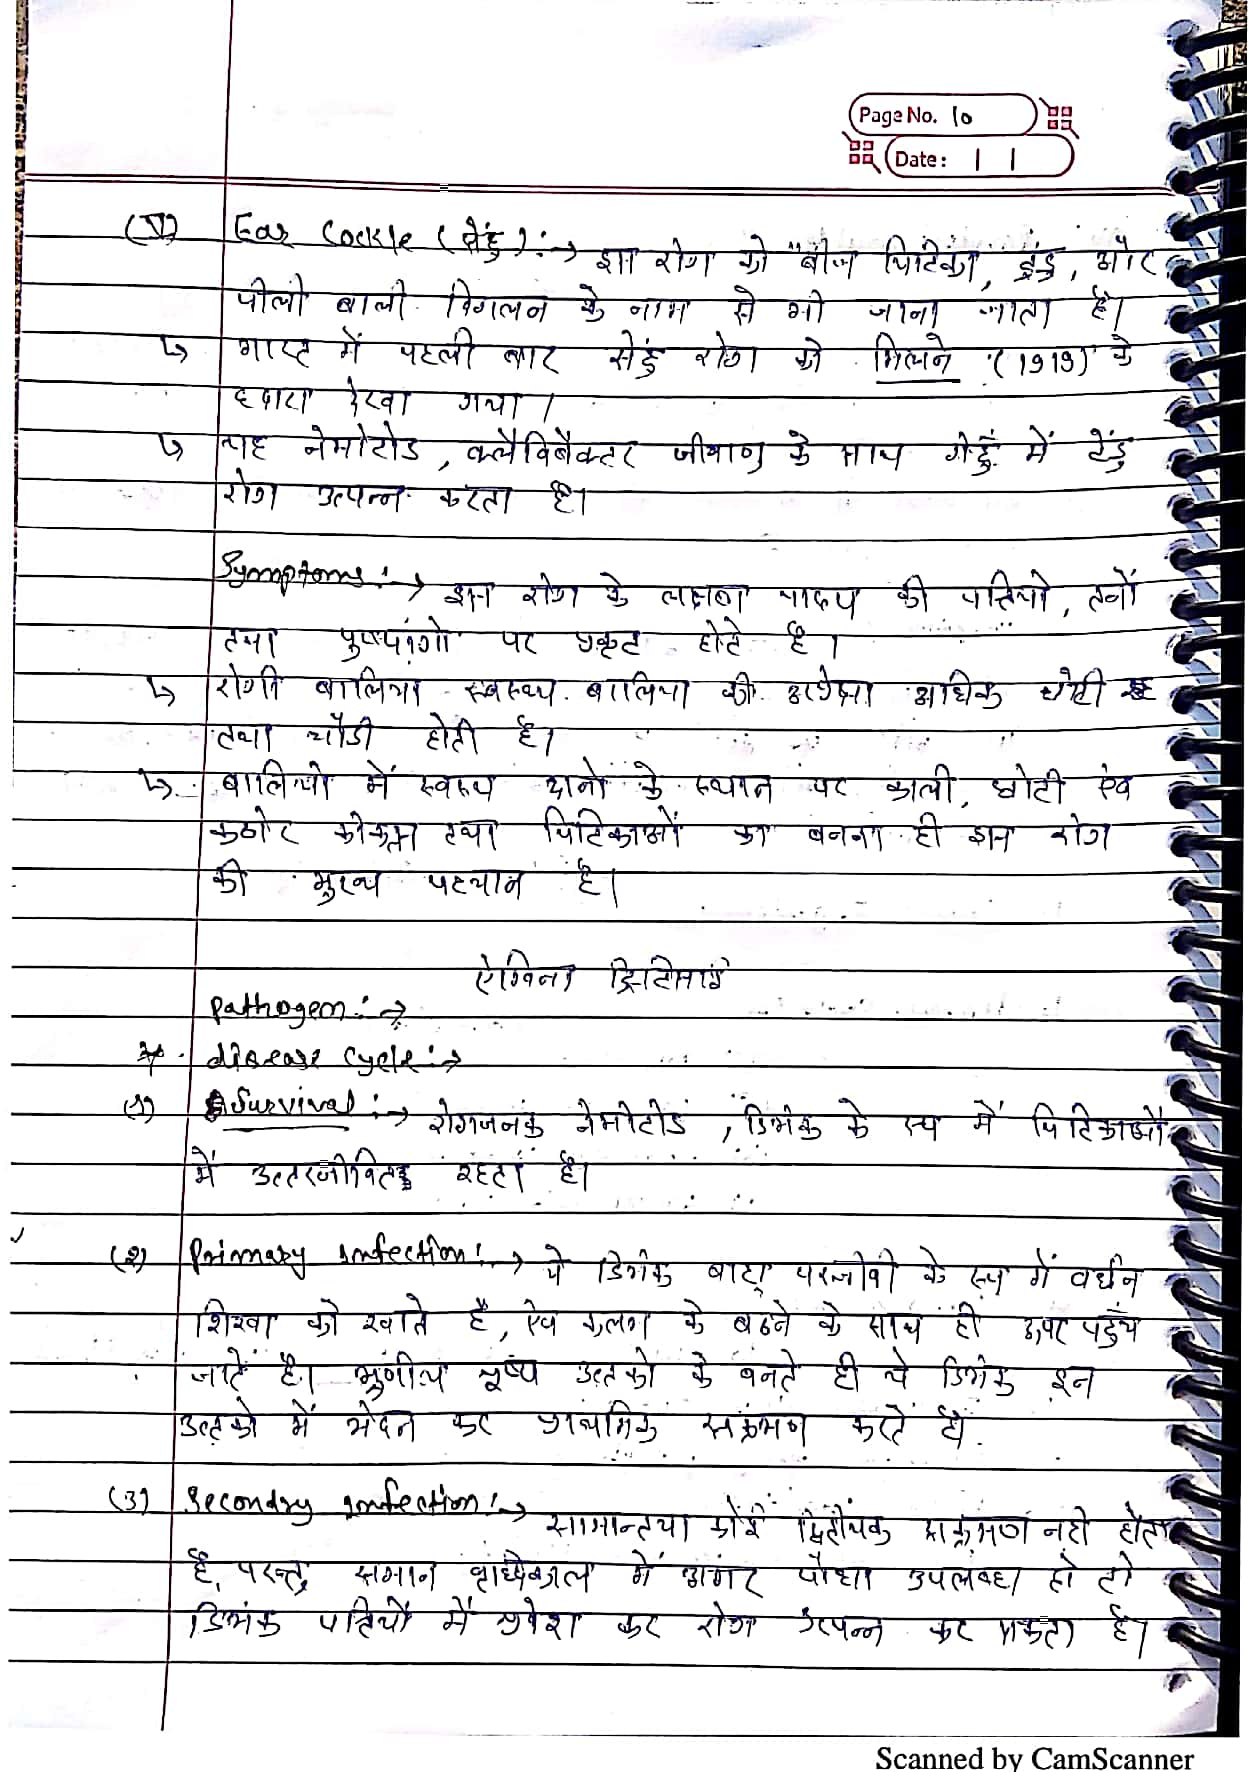 Page No. 10
Date: | |
Ear Cockle (सेंहु) :→ इस रोग को "बीज पिटिका, टुंडु, और
पीली बाली विगलन के नाम से भी जाना जाता है।
↳ भारत में पहली बार सेंहु रोग को मिलने (1919) के
द्वारा देखा गया।
↳ यह नेमोटोड, क्लैविबैक्टर जीवाणु के साथ गेहूँ में टुंडु
रोग उत्पन्न करता है।
Symptoms :→ इस रोग के लक्षण पादप की पत्तियो, तनों
तथा पुष्पांगो पर प्रकट होते है।
↳ रोगी बालिया स्वस्थ्य बालिया की अपेक्षा अधिक छोटी
तथा चौडी होती है।
↳ बालियो में स्वस्थ दानो के स्थान पर काली, छोटी एंव
कठोर कोकल्स तथा पिटिकाओं का बनना ही इस रोग
की मुख्य पहचान है।
ऐंग्विना ट्रिटिसाई
Pathogen :→
* disease cycle :→
(1) Survival :→ रोगजनक नेमोटोड, डिंभक के रूप में पिटिकाओं
में उत्तरजीवित रहता है।
(2) Primary infection :→ ये डिंभक बाह्य परजीवी के रूप में वर्धन
शिखा को खाते है, एंव कलम के बढने के साथ ही ऊपर पहुँच
जाते है। भ्रूणीय पुष्प उत्तको के बनते ही ये डिंभक इन
उत्तको में भेदन कर प्राथमिक संक्रमण करते है।
(3) Secondry infection :→ सामान्तया कोई द्वितीयक संक्रमण नही होता
है, परन्तु समान वृध्दिकाल में अगर पौधा उपलब्ध हो तो
डिंभक पत्तियों में प्रवेश कर रोग उत्पन्न कर सकता है।
Scanned by CamScanner